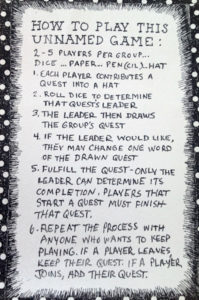 HOW TO PLAY THIS
UNNAMED GAME:
2-5 PLAYERS PER GROUP...
DICE... PAPER... PEN(CIL). HAT
1. EACH PLAYER CONTRIBUTES A
QUEST INTO A HAT
2. ROLL DICE TO DETERMINE
THAT QUEST'S LEADER
3. THE LEADER THEN DRAWS
THE GROUP'S QUEST
4. IF THE LEADER WOULD LIKE,
THEY MAY CHANGE ONE WORD
OF THE DRAWN QUEST
5. FULFILL THE QUEST-ONLY THE
LEADER CAN DETERMINE ITS
COMPLETION. PLAYERS THAT
START A QUEST MUST FINISH
THAT QUEST.
6. REPEAT THE PROCESS WITH
ANYONE WHO WANTS TO KEEP
PLAYING. IF A PLAYER LEAVES,
KEEP THEIR QUEST. IF A PLAYER
JOINS, ADD THEIR QUEST.